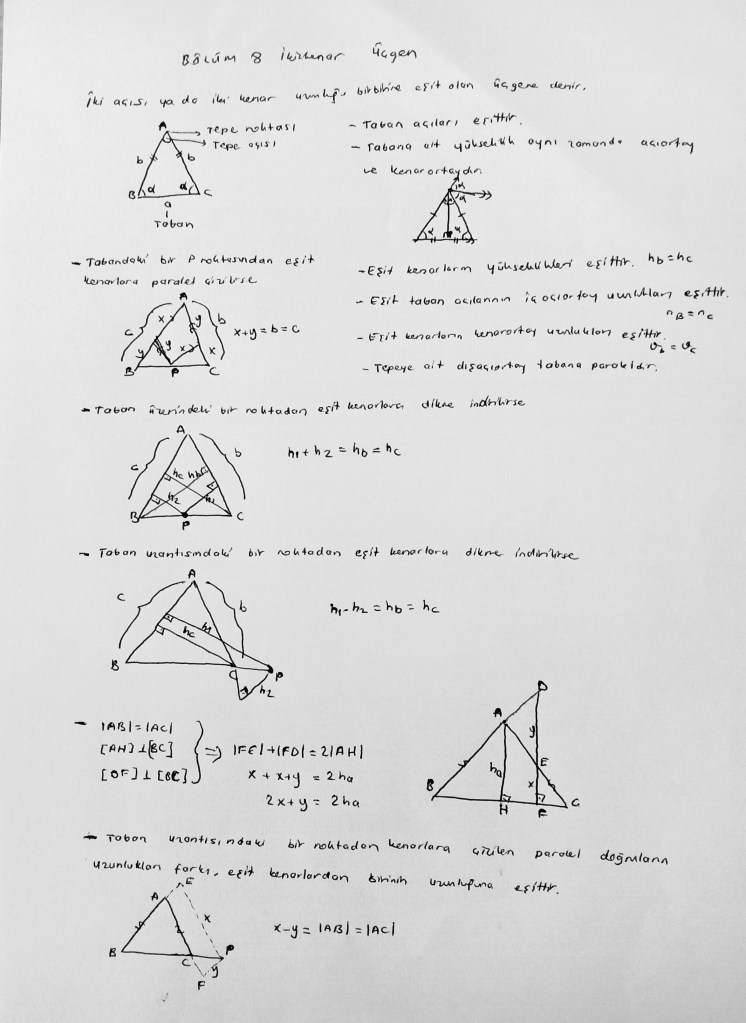 BÖLÜM 8 İkizkenar Üçgen
İki açısı ya da iki kenar uzunluğu birbirine eşit olan üçgene denir.
A
Tepe noktası
Tepe açısı
b b
B α α C
a
Taban
- Taban açıları eşittir.
- Tabana ait yükseklik aynı zamanda açıortay
ve kenarortaydır.
α
α
α α
- Tabandaki bir P noktasından eşit
kenarlara paralel çizilirse
A
c x y b
y y x x
B P C
x+y=b=c
- Eşit kenarların yükseklikleri eşittir. hb=hc
- Eşit taban açılarının iç açıortay uzunlukları eşittir.
nB = nC
- Eşit kenarların kenarortay uzunlukları eşittir.
υb = υc
- Tepeye ait dışaçıortay tabana paraleldir.
- Taban üzerindeki bir noktadan eşit kenarlara dikme indirilirse
A
c b
hc hb
h2 h1
B P C
h1 + h2 = hb = hc
- Taban uzantısındaki bir noktadan eşit kenarlara dikme indirilirse
A
c b
h1
hc
B C P
h2
h1 - h2 = hb = hc
- |AB| = |AC|
[AH] ⊥ [BC]
[DF] ⊥ [BC]
=> |FE|+|FD|=2|AH|
x + x+y = 2ha
2x+y = 2ha
D
A
y
ha E
x
B H F C
- Taban uzantısındaki bir noktadan kenarlara çizilen paralel doğruların
uzunlukları farkı, eşit kenarlardan birinin uzunluğuna eşittir.
E
A
x
B C P
y
F
x-y = |AB| = |AC|